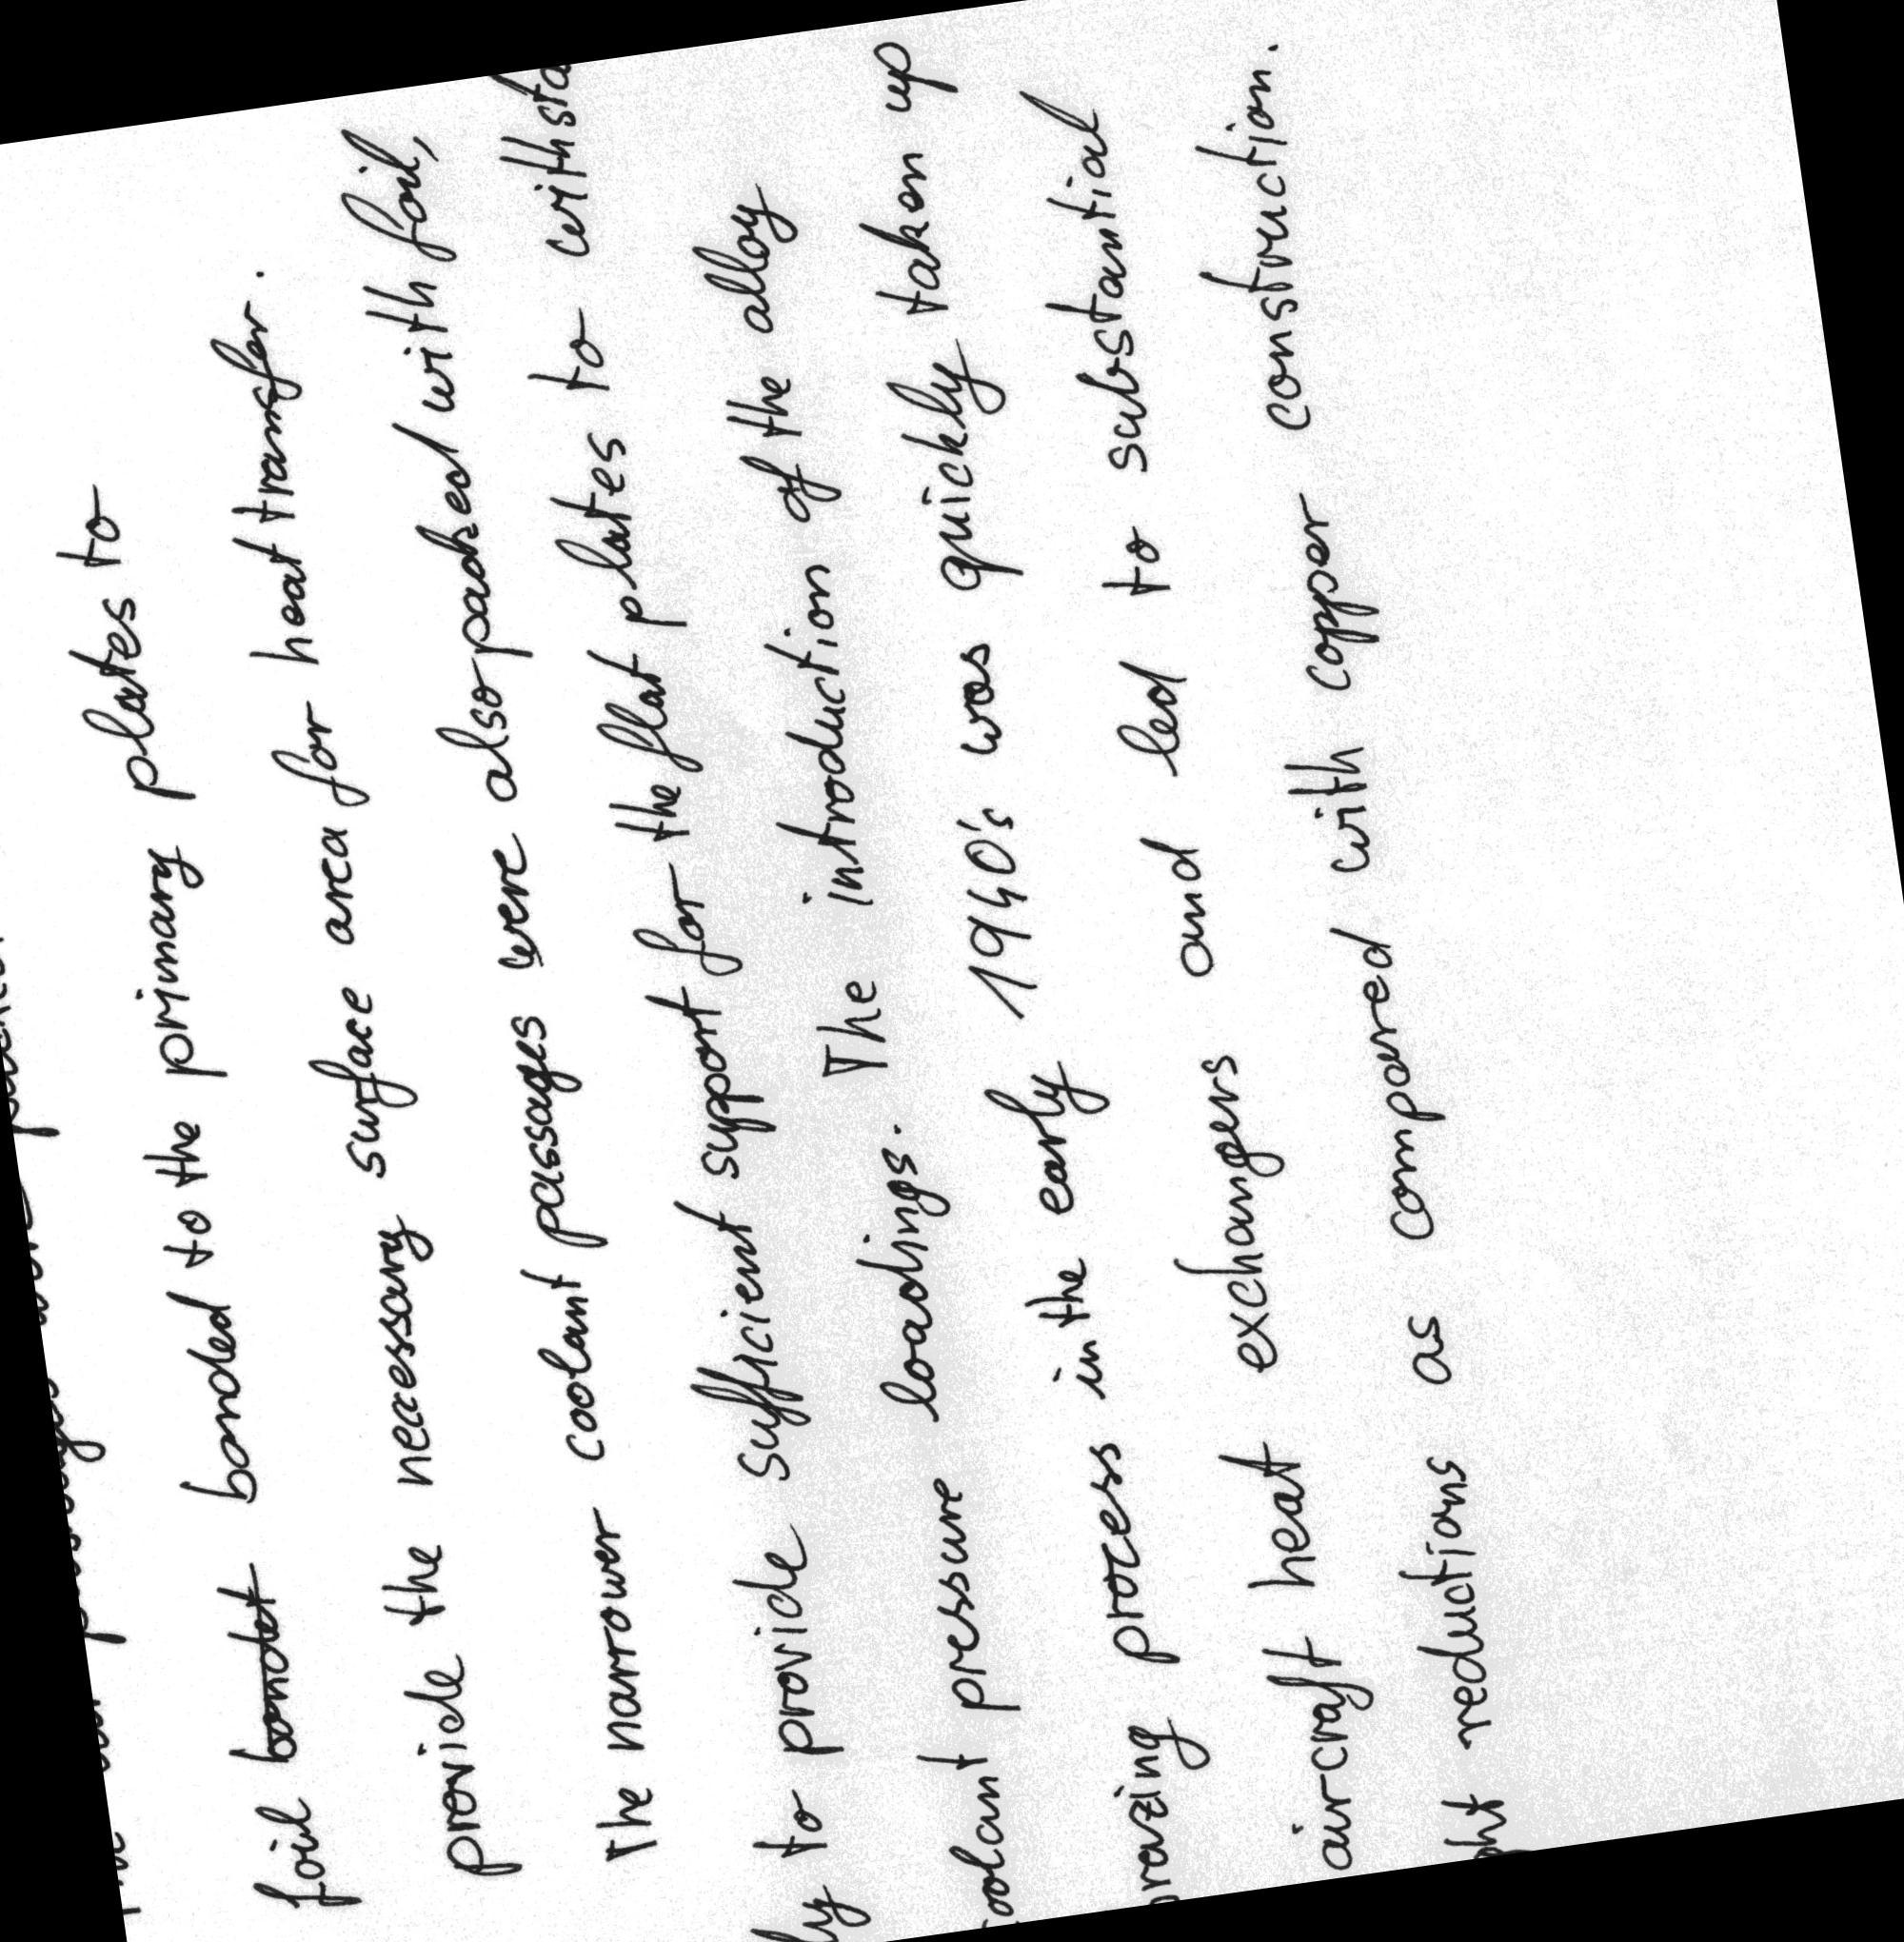 foil bondet bonded to the primary plates to
provide the necessary surface area for heat transfer.
The narrower coolant passages were also packed with foil,
to provide sufficient support for the flat plates to
pressure loadings. The introduction of the alloy
process in the early 1940's was quickly taken up
aircraft heat exchangers and led to substantial
reductions as compared with copper construction.